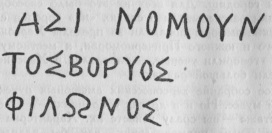 ΑΣΙ ΝΟΜΟΥΝ
ΤΟΣΒΟΡΥΟΣ
ΦΙΛΩΝΟΣ